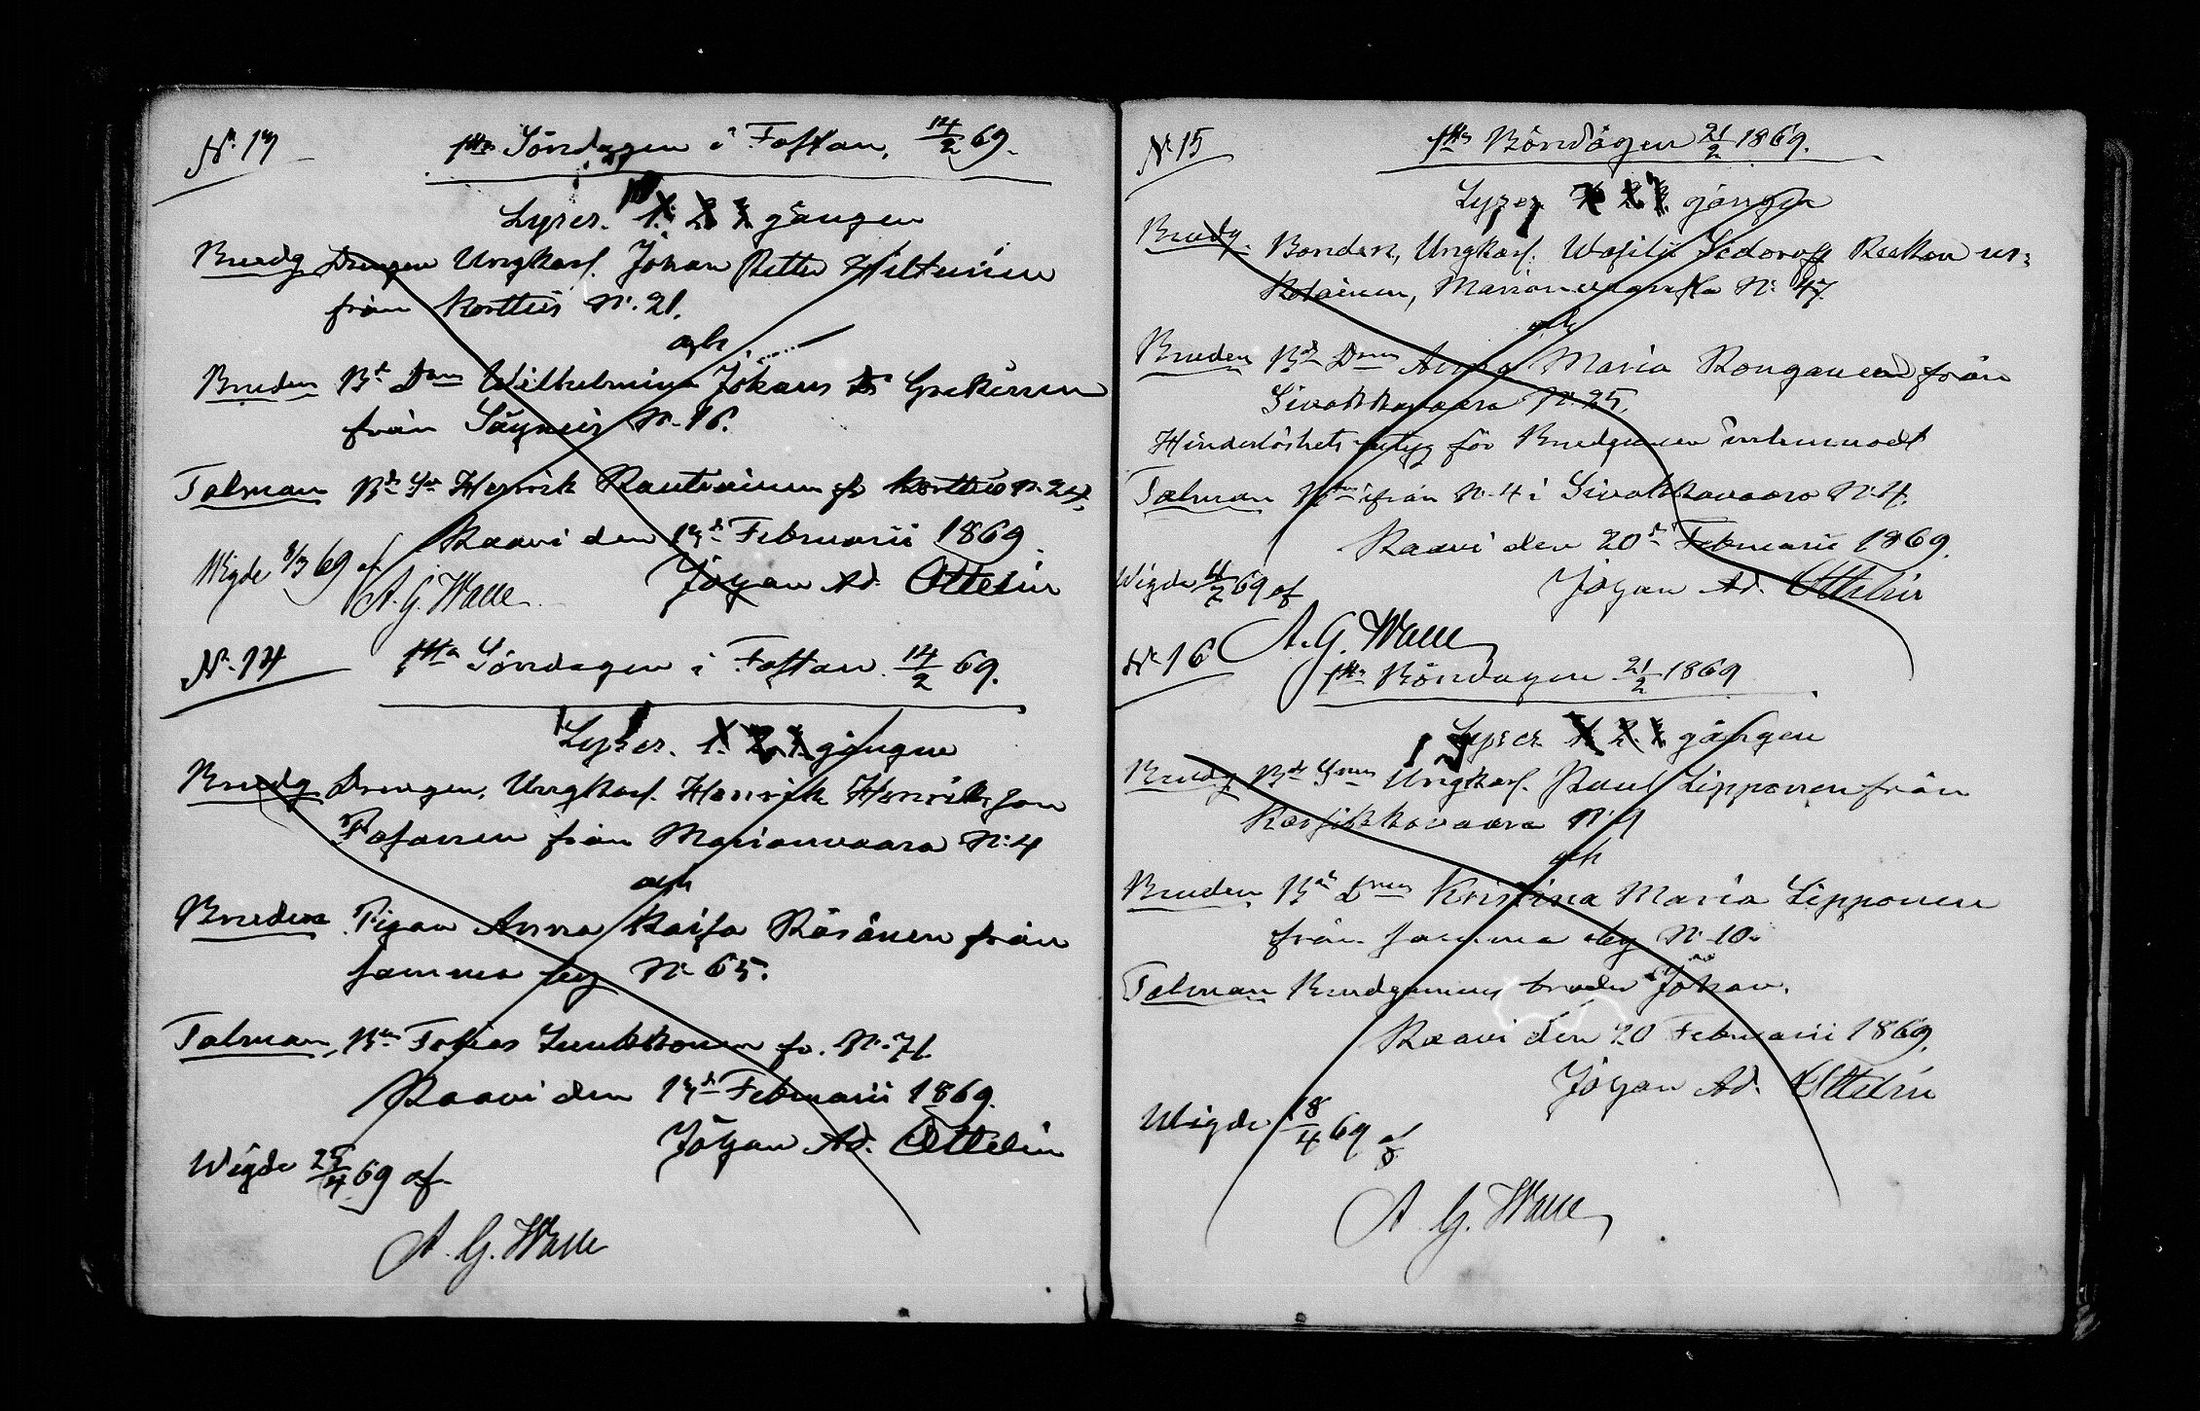 N:o 13
1sta Söndagen i Fastan, 14/2 69.
Lyses. 1. 2. 3. gången
Brudg Drengen Ungkarl. Johan Petter Hiltunen
från Korttis N:o 21.
och
Bruden Bd Dom Wilhelmina Johans Dr
från Säyneis N:o 16.
Talman Bde Sn Henrik Rautiainen fr Korttis N:o 24.
Kaavi den 13d Februarii 1869.
Wigde 8/3 69 af
A. G. Walle
Johan Ad. Ottelin
N:o 14
1sta Söndagen i Fastan. 14/2 69.
Lyses. 1. 2. 3. gången
Brudg Drengen, Ungkarl. Henrik Henriksson
från Marianvaara N:o 4
och
Bruden Pigan Anna Kaisa Räsänen från
samma by N:o 65.
Talman, Bn Tobias fr. N:o 71
Kaavi den 13d Februarii 1869.
Johan Ad. Ottelin
Wigde 25/4 69 af
A. G. Walle
N:o 15
1sta Böndagen 21/2 1869.
Lyses 1 2 3 gången
Brudg. Bonden, Ungkarl. Wasilii Sidoroff
N:o 47.
och
Bruden Bd Dom Anna Maria Rongainen från
Sivakkavaara N:o 25.
Hinderlöshets betyg för Brudgummen inlemnadt
Talman från N:o 4 i Sivakkavaara N:o 4.
Kaavi den 20d Februarii 1869.
Johan Ad. Ottelin
Wigde 69 af
A. G. Walle
N:o 16
1sta Böndagen 21/2 1869
Lyses 1 2 3 gången
Brudg Bde Sn Ungkarl. Paul Lipponen från
Karsikkovaara N:o 9
och
Bruden Bd Dom Kristina Maria Lipponen
från samma by N:o 10.
Talman Brudgummens broder Johan.
Kaavi den 20 Februarii 1869.
Johan Ad. Ottelin
Wigde 18/4 69 af
A. G. Walle